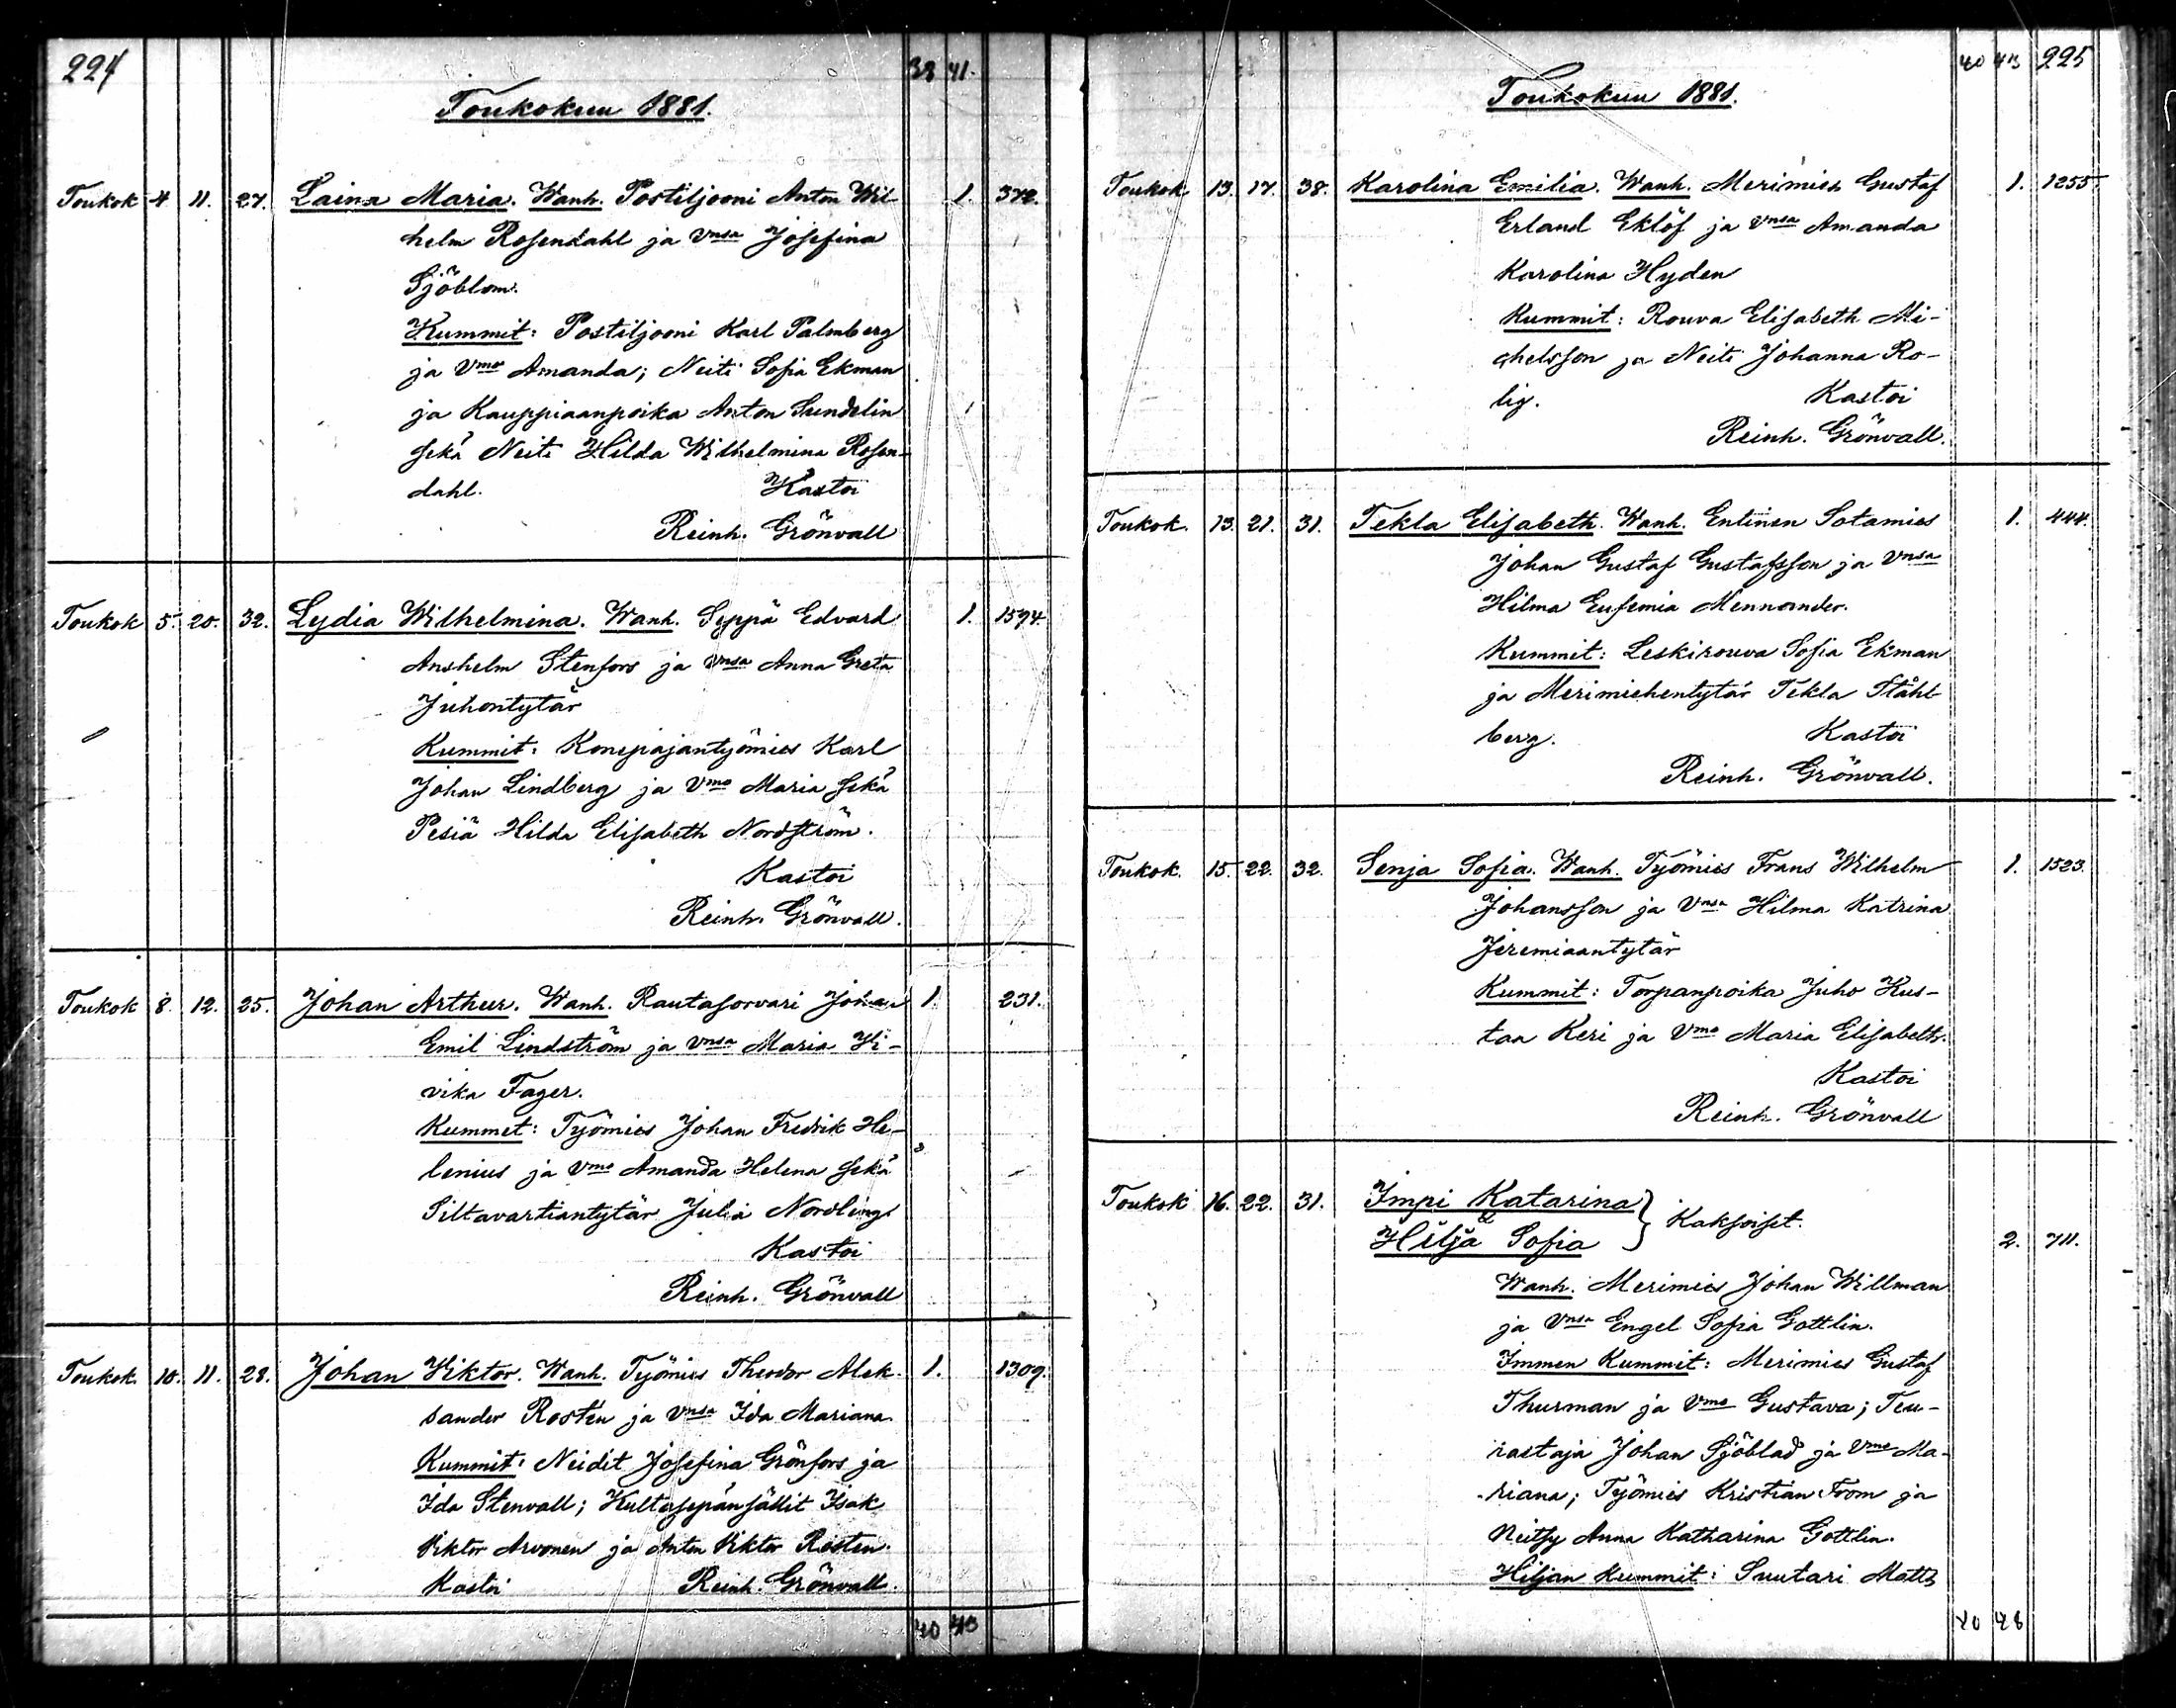 224
38 41.
Toukokuu 1881.
Toukok 4 11. 27. Laina Maria. Wanh. Postiljooni Anton Wil- 1. 372.
helm Rosendahl ja vnsa Josefina
Sjöblom.
Kummit: Postiljooni Karl Palmberg
ja vmo Amanda; Neiti Sofia Ekman
ja Kauppiaanpoika Anton Sundelin
sekä Neiti Hilda Wilhelmina Rosen-
dahl. Kastoi
Reinh. Grönvall
Toukok 5. 20. 32. Lydia Wilhelmina. Wanh. Seppä Edvard 1. 1594.
Anshelm Stenfors ja vnsa Anna Greta
Juhontytär
Kummit: Konepajantyömies Karl
Johan Lindberg ja vmo Maria sekä
Pesiä Hilda Elisabeth Nordström.
Kastoi
Reinh. Grönvall.
Toukok 8. 12. 25. Johan Arthur. Wanh. Rautasorvari Johan 1. 231.
Emil Lindström ja vnsa Maria Vi-
vika Fager.
Kummit: Työmies Johan Fredrik He-
lenius ja vmo Amanda Helena sekä
Siltavartiantytär Julia Nordling
Kastoi
Reinh. Grönvall
Toukok. 10. 11. 28. Johan Viktor. Wanh. Työmies Theodor Alek- 1. 1309.
sander Rostén ja vnsa Ida Mariana.
Kummit: Neidit Josefina Grönfors ja
Ida Stenvall; Kultasepänsällit Isak
Viktor Arvonen ja Anton Viktor Rosten.
Kastoi Reinh. Grönvall.
40 43
40 43 225
Toukokuu 1881.
Toukok. 13. 17. 38. Karolina Emilia. Wanh. Merimies Gustaf 1. 1255.
Erland Eklöf ja vnsa Amanda
Karolina Hyden
Kummit: Rouva Elisabeth Mi-
chelsson ja Neiti Johanna Ro-
lig. Kastoi
Reinh. Grönvall.
Toukok. 13. 21. 31. Tekla Elisabeth. Wanh. Entinen Sotamies 1. 444.
Johan Gustaf Gustafsson ja vnsa
Hilma Eufemia Mennander.
Kummit: Leskirouva Sofia Ekman
ja Merimiehentytär Tekla Ståhl-
berg. Kastoi
Reinh. Grönvall.
Toukok. 15. 22. 32. Senja Sofia. Wanh. Työmies Frans Wilhelm 1. 1523.
Johansson ja vnsa Hilma Katrina
Jeremiaantytär
Kummit: Torpanpoika Juho Kus-
taa Keri ja vmo Maria Elisabeth.
Kastoi
Reinh. Grönvall
Toukok 16. 22. 31. Impi Katarina
& } Kaksoiset.
Hilja Sofia 2. 711.
Wanh. Merimies Johan Willman
ja vnsa Engel Sofia Gottlin.
Immen Kummit: Merimies Gustaf
Thurman ja vmo Gustava; Teu-
rastaja Johan Sjöblad ja vmo Ma-
riana; Työmies Kristian From ja
Neitsy Anna Katharina Gottlin.
Hiljan Kummit: Suutari Matts
40 48